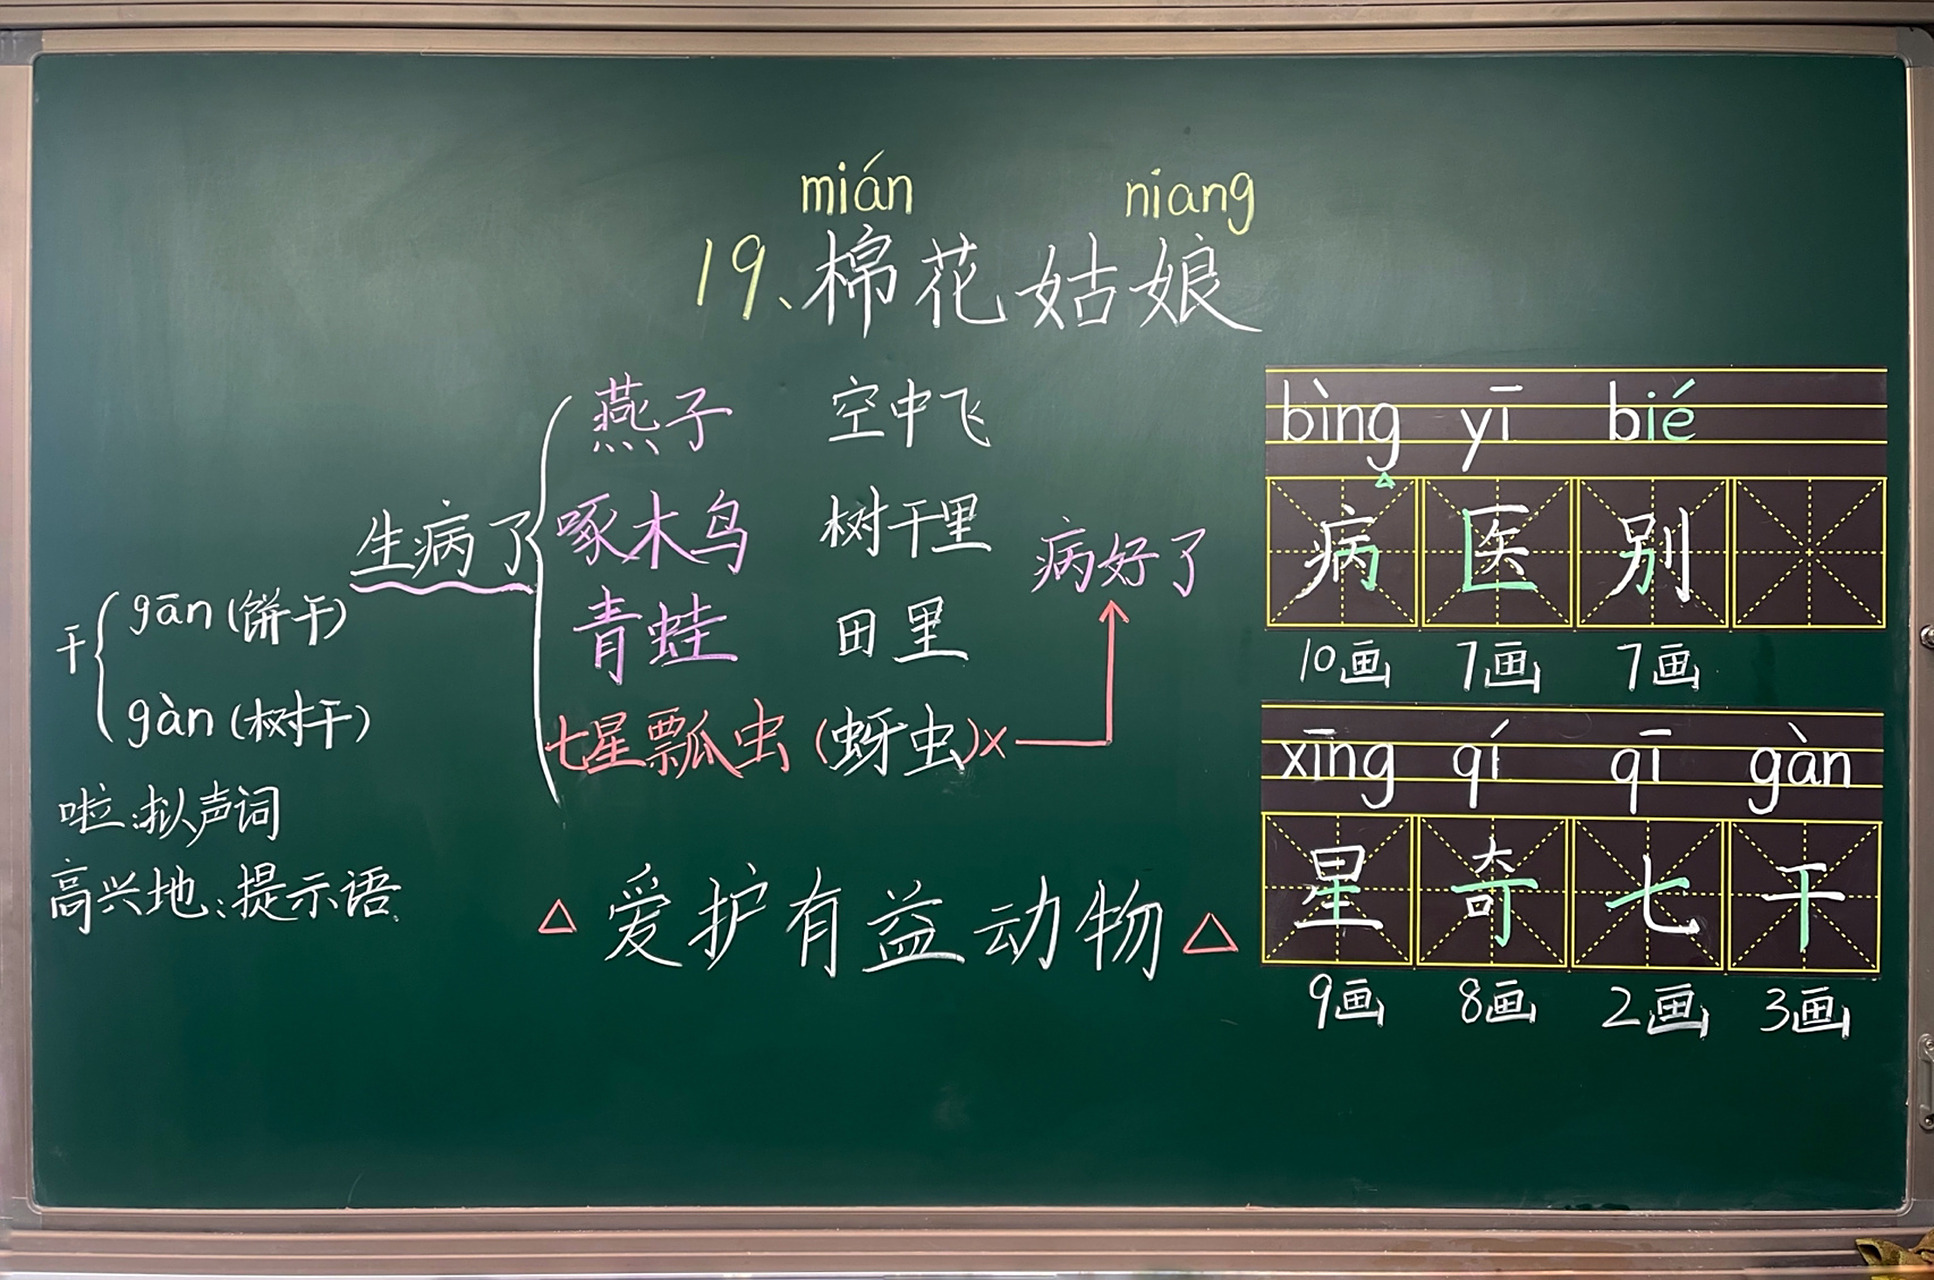 mián niang
19、棉花姑娘
生病了
燕子 空中飞
啄木鸟 树干里
青蛙 田里
七星瓢虫 (蚜虫)×
病好了
干
gān (饼干)
gàn (树干)
啦:拟声词
高兴地:提示语
△ 爱护有益动物 △
bìng yī bié
病 医 别
10画 7画 7画
xīng qí qī gàn
星 奇 七 干
9画 8画 2画 3画